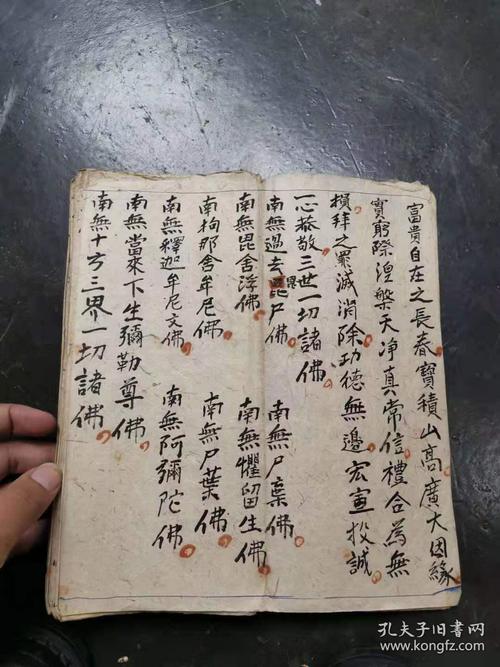 富貴自在之長春寳積山高廣大因緣
實窮際湼槃天净真常信禮合為無
損拜之罪滅消除功德無邊宏宣投誠
一心恭敬三世一切諸佛
南無過去毘尸佛 南無尸棄佛
南無毘舍浮佛 南無懼留生佛
南拘那舍牟尼佛 南無尸葉佛
南無釋迦牟尼文佛 南無阿彌陀佛
南無當來下生彌勒尊佛
南無十方三界一切諸佛
孔夫子旧书网
www.kongfz.com